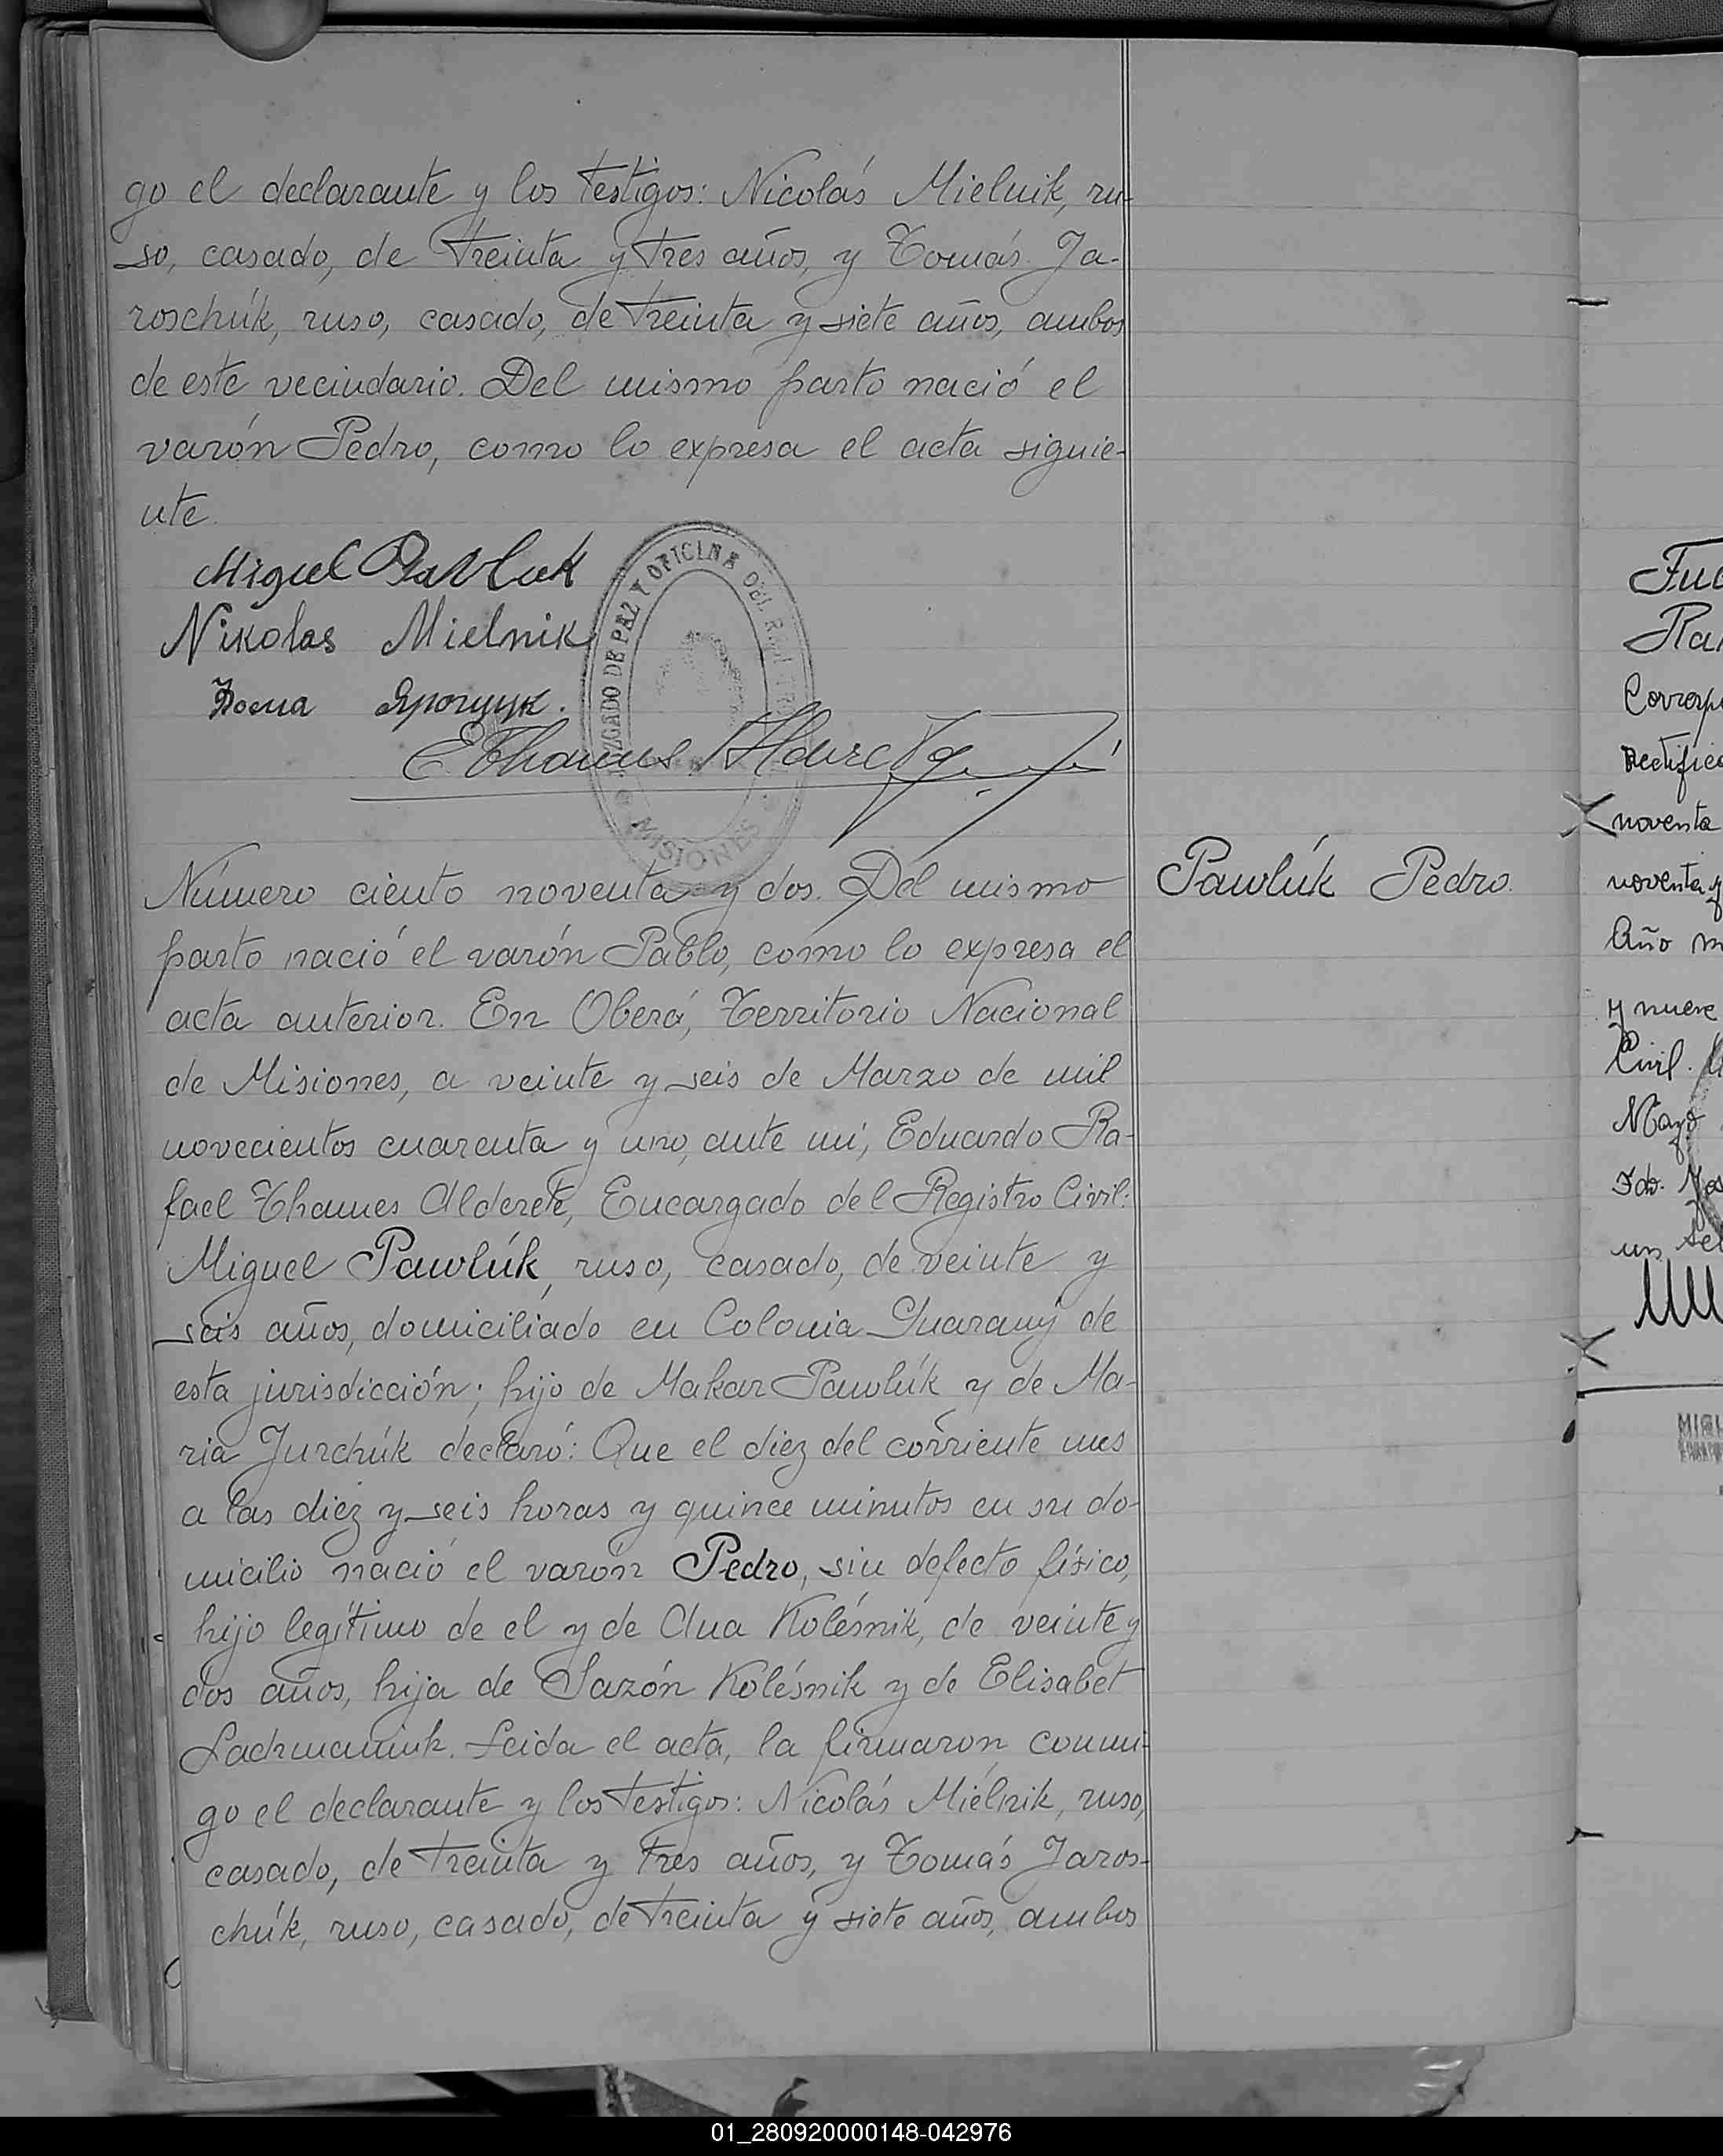 go el declarante y los testigos: Nicolás Mielnik, ru-
so, casado, de treinta y tres años, y Tomás Ja-
roschúk, ruso, casado, de treinta y siete años, ambos
de este vecindario. Del mismo parto nació el
varón Pedro, como lo expresa el acta siguie-
nte.
Miguel Pavluk
Nikolas Mielnik
JUZGADO DE PAZ Y OFICINA DEL
MISIONES
Número ciento noventa y dos. Del mismo
Pawlúk Pedro.
parto nació el varón Pablo, como lo expresa el
acta anterior. En Oberá, Territorio Nacional
de Misiones, a veinte y seis de Marzo de mil
novecientos cuarenta y uno, ante mí, Eduardo Ra-
fael Thames Alderete, Encargado del Registro Civil:
Miguel Pawlúk, ruso, casado, de veinte y
seis años, domiciliado en Colonia Guarany de
esta jurisdicción; hijo de Makar Pawlúk y de Ma-
ria Jurchúk declaró: Que el diez del corriente mes
a las diez y seis horas y quince minutos en su do-
micilio nació el varón Pedro, sin defecto físico,
hijo legítimo de el y de Ana Kolésnik, de veinte y
dos años, hija de Sazón Kolésnik y de Elisabet
Leida el acta, la firmaron conmi-
go el declarante y los testigos: Nicolás Miélnik, ruso,
casado, de treinta y tres años, y Tomás Jaros-
chúk, ruso, casado, de treinta y siete años, ambos
noventa
noventa y
Año
y nueve
Civil.
Mayo
un
01_280920000148-042976